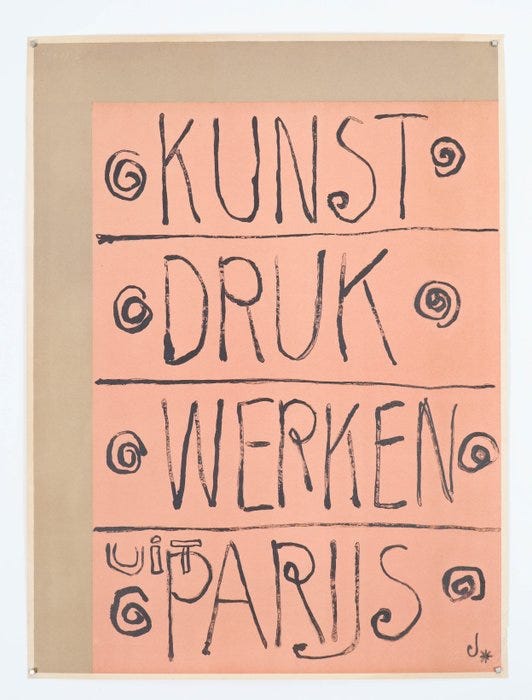 KUNST
DRUK
WERKEN
UIT PARIJS
J*